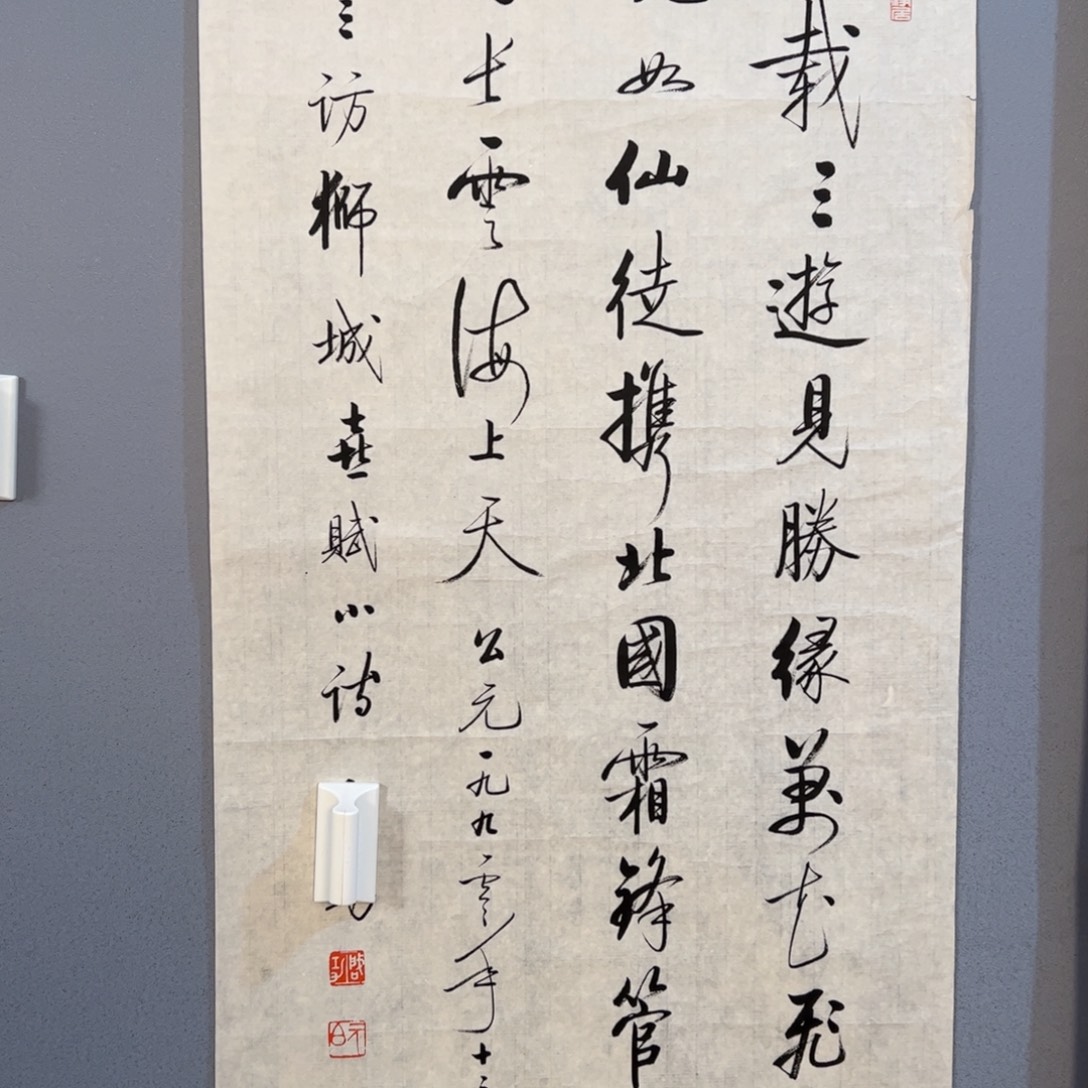 載三遊見勝緣萬花飛
如仙徒携北國霜鋒管
长雲海上天 公元一九九零年十
三访獅城喜賦小诗